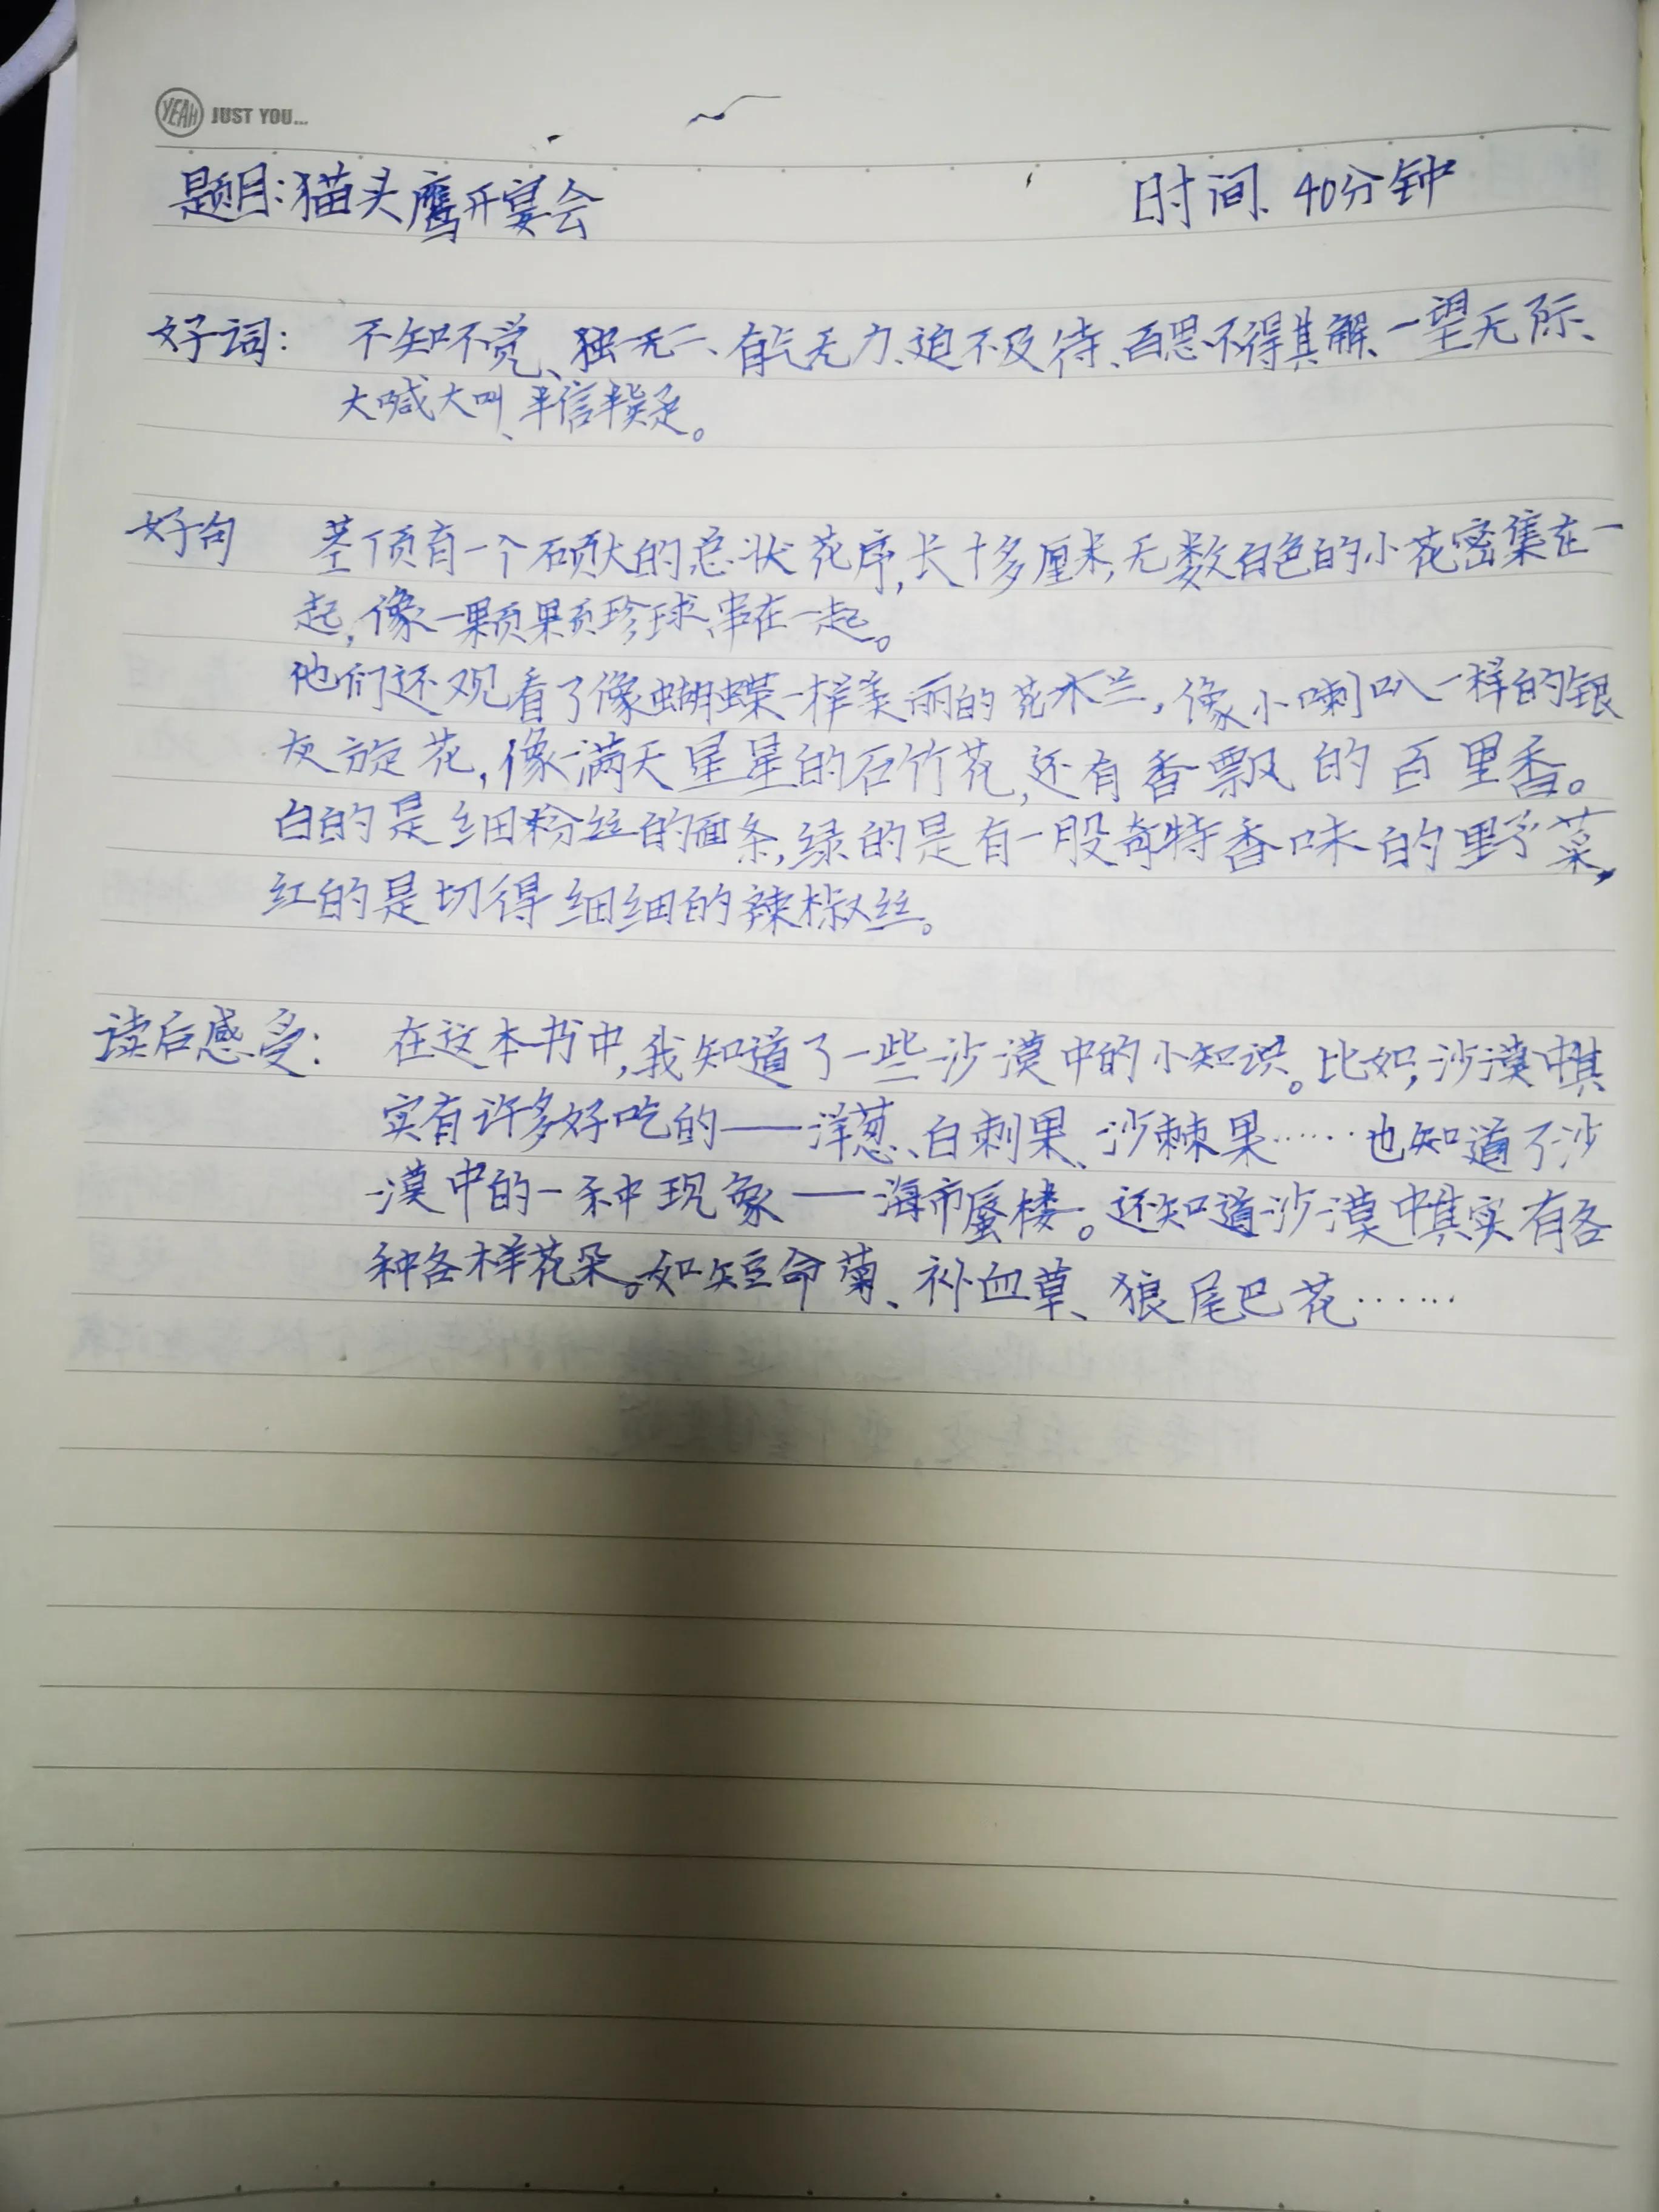 YEAH JUST YOU...
题目:猫头鹰开宴会 时间、40分钟
好词: 不知不觉、独一无二、有气无力、迫不及待、百思不得其解、一望无际、
大喊大叫、半信半疑。
好句 茎顶有一个硕大的总状花序,长十多厘米,无数白色的小花密集在一
起,像一颗颗珍珠串在一起。
他们还观看了像蝴蝶一样美丽的花木兰,像小喇叭一样的银
灰旋花,像满天星星的石竹花,还有香飘的百里香。
白的是细粉丝的面条,绿的是有一股奇特香味的野菜,
红的是切得细细的辣椒丝。
读后感受: 在这本书中,我知道了一些沙漠中的小知识。比如,沙漠中其
实有许多好吃的——洋葱、白刺果、沙棘果……也知道了沙
漠中的一种现象——海市蜃楼。还知道沙漠中其实有各
种各样花朵。如短命菊、补血草、狼尾巴花……